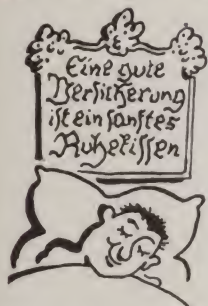 Eine gute
Versicherung
ist ein sanftes
Ruhekissen